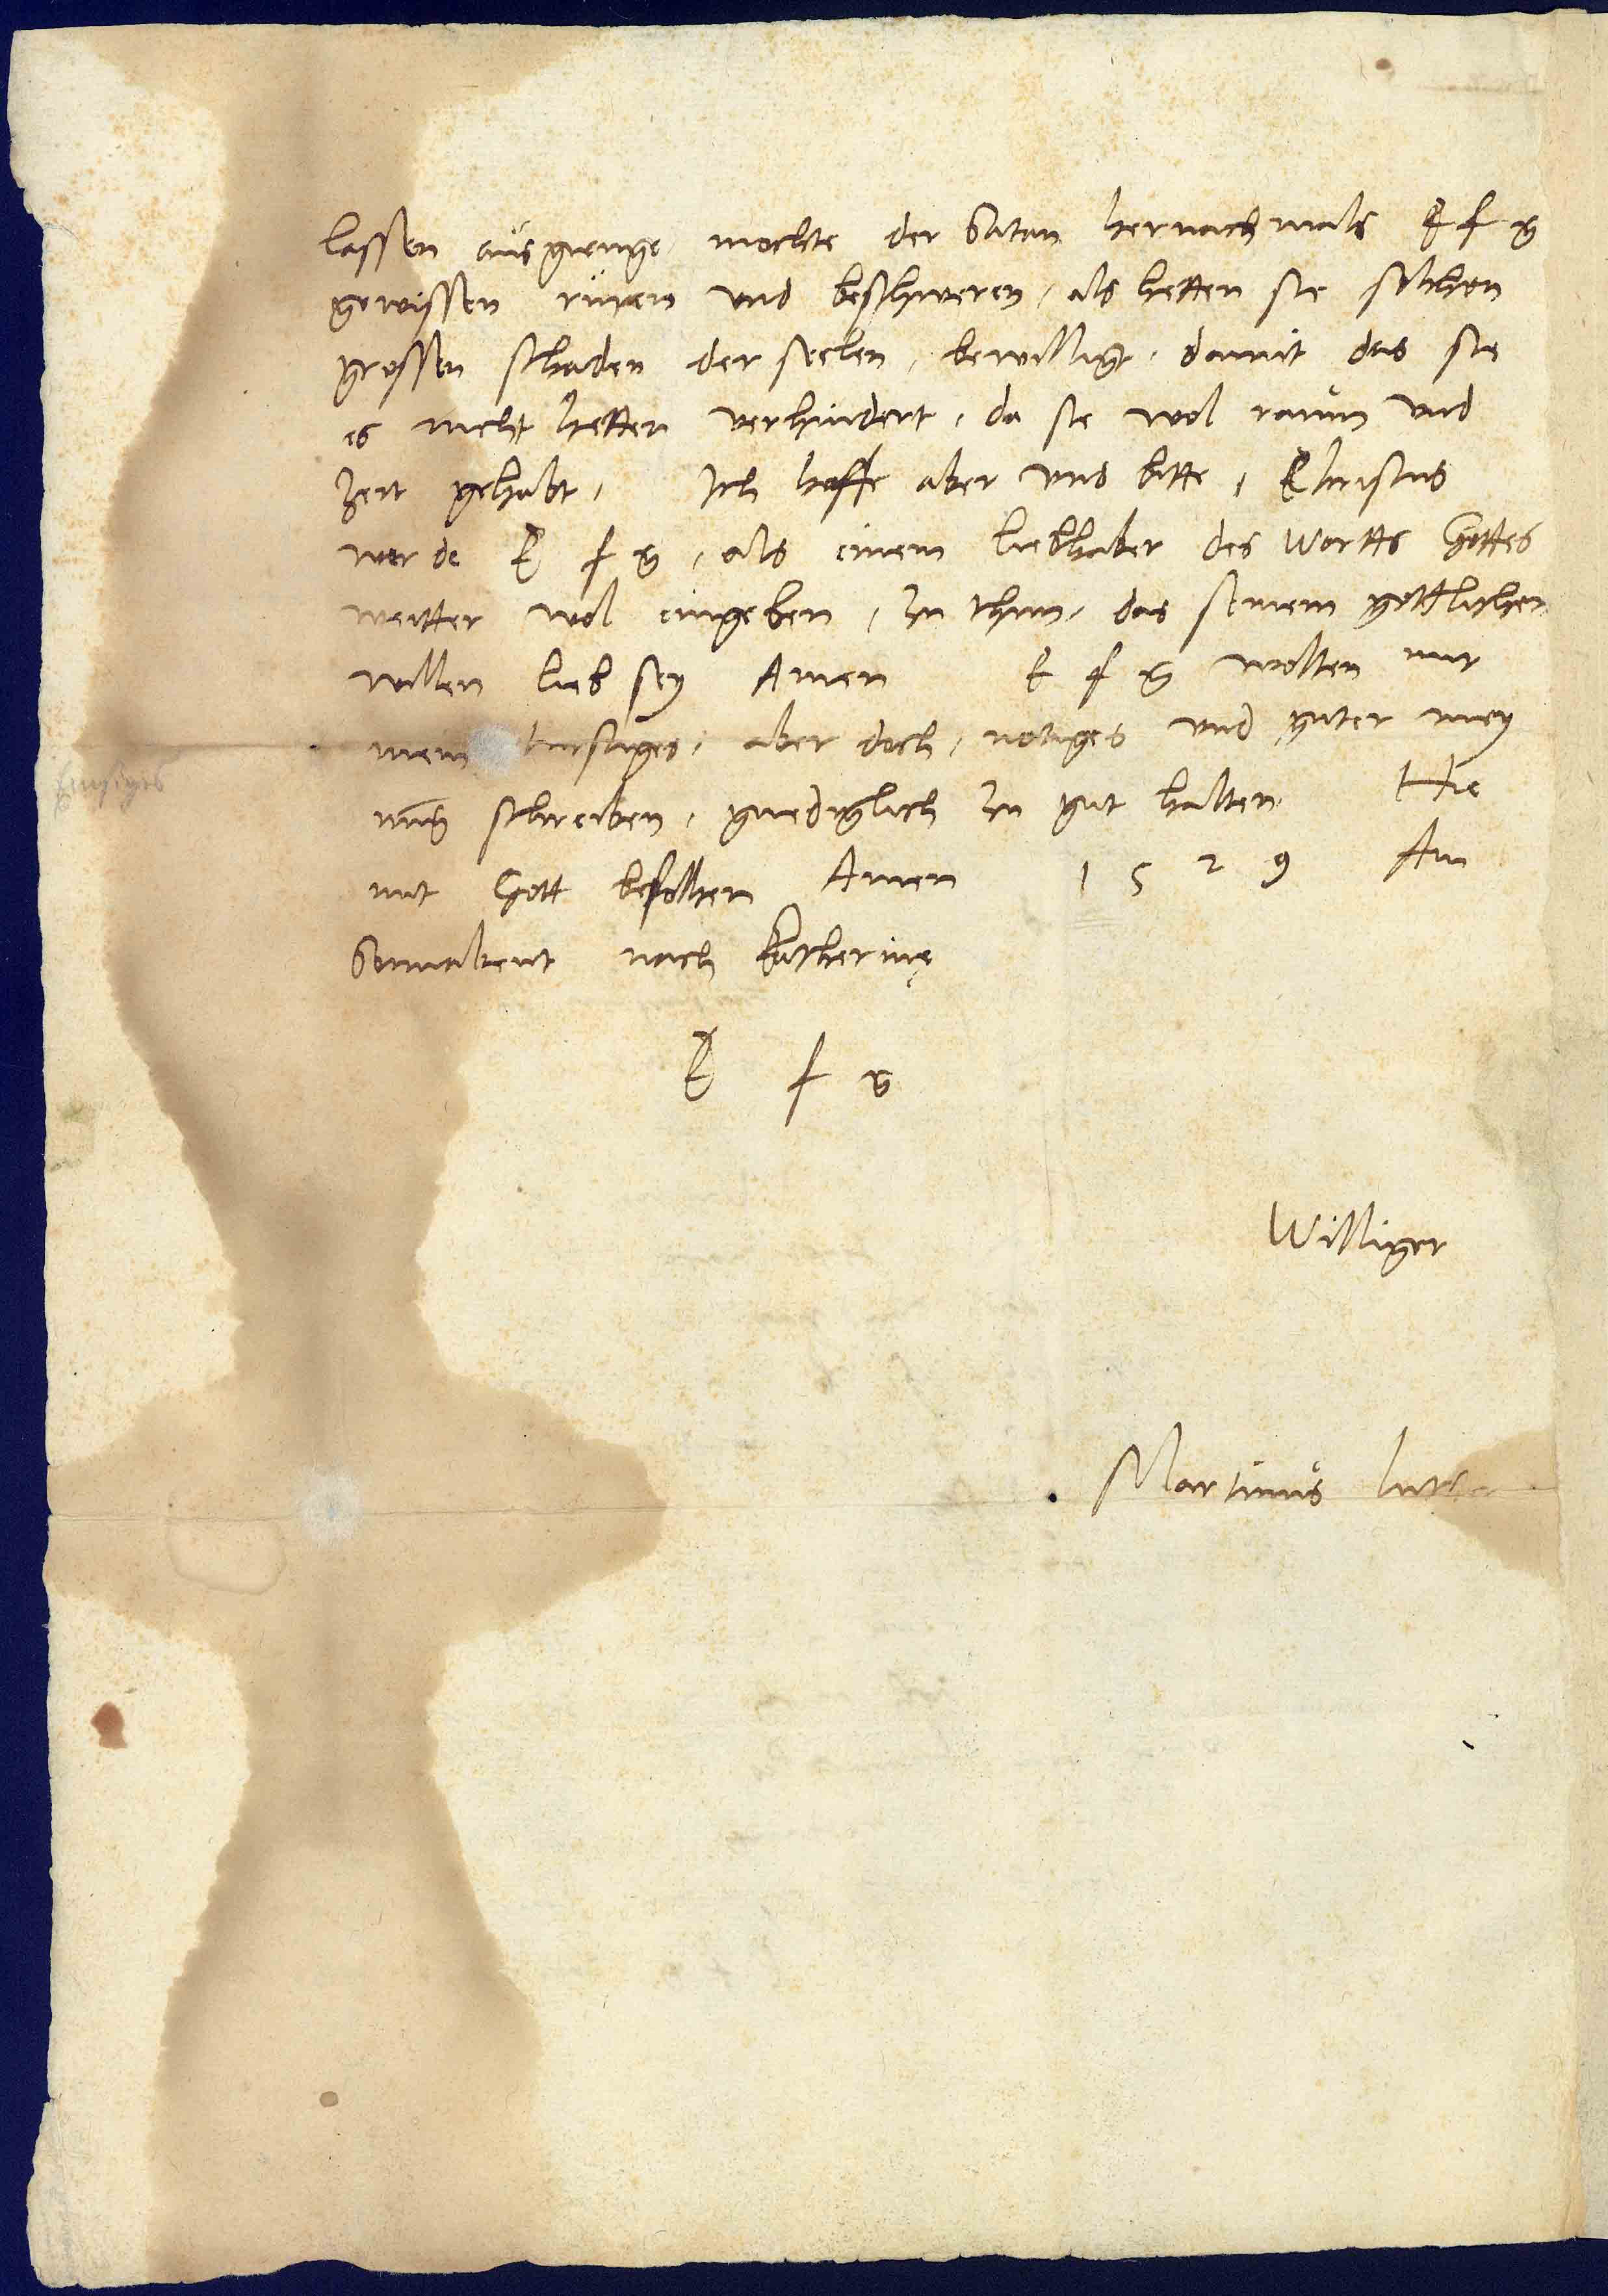 lassen ausgienge mochte der Satan hernachmals E f g
gewissen rüren und beschweren, als hetten sie solchen
grossen schaden der seelen, bewilligt, damit das sie
es nicht hetten verhindert, da sie wol raum und
zeit gehabt, Ich hoffe aber und bitte, Christus
werde E f g, als einem liebhaber des Wortts Gottes
weitter wol eingeben, zu thun, das seinem gottlichen
willen lieb sey Amen E f g wolten mir
mein turstiges, aber doch, notiges und guter mey
nung schreiben, gnediglich zu gut halten Hie
mit Gott befolhen Amen 1 5 2 9 Am
Sonnabent nach Katherinę
E f g
Williger
Martinus Luther